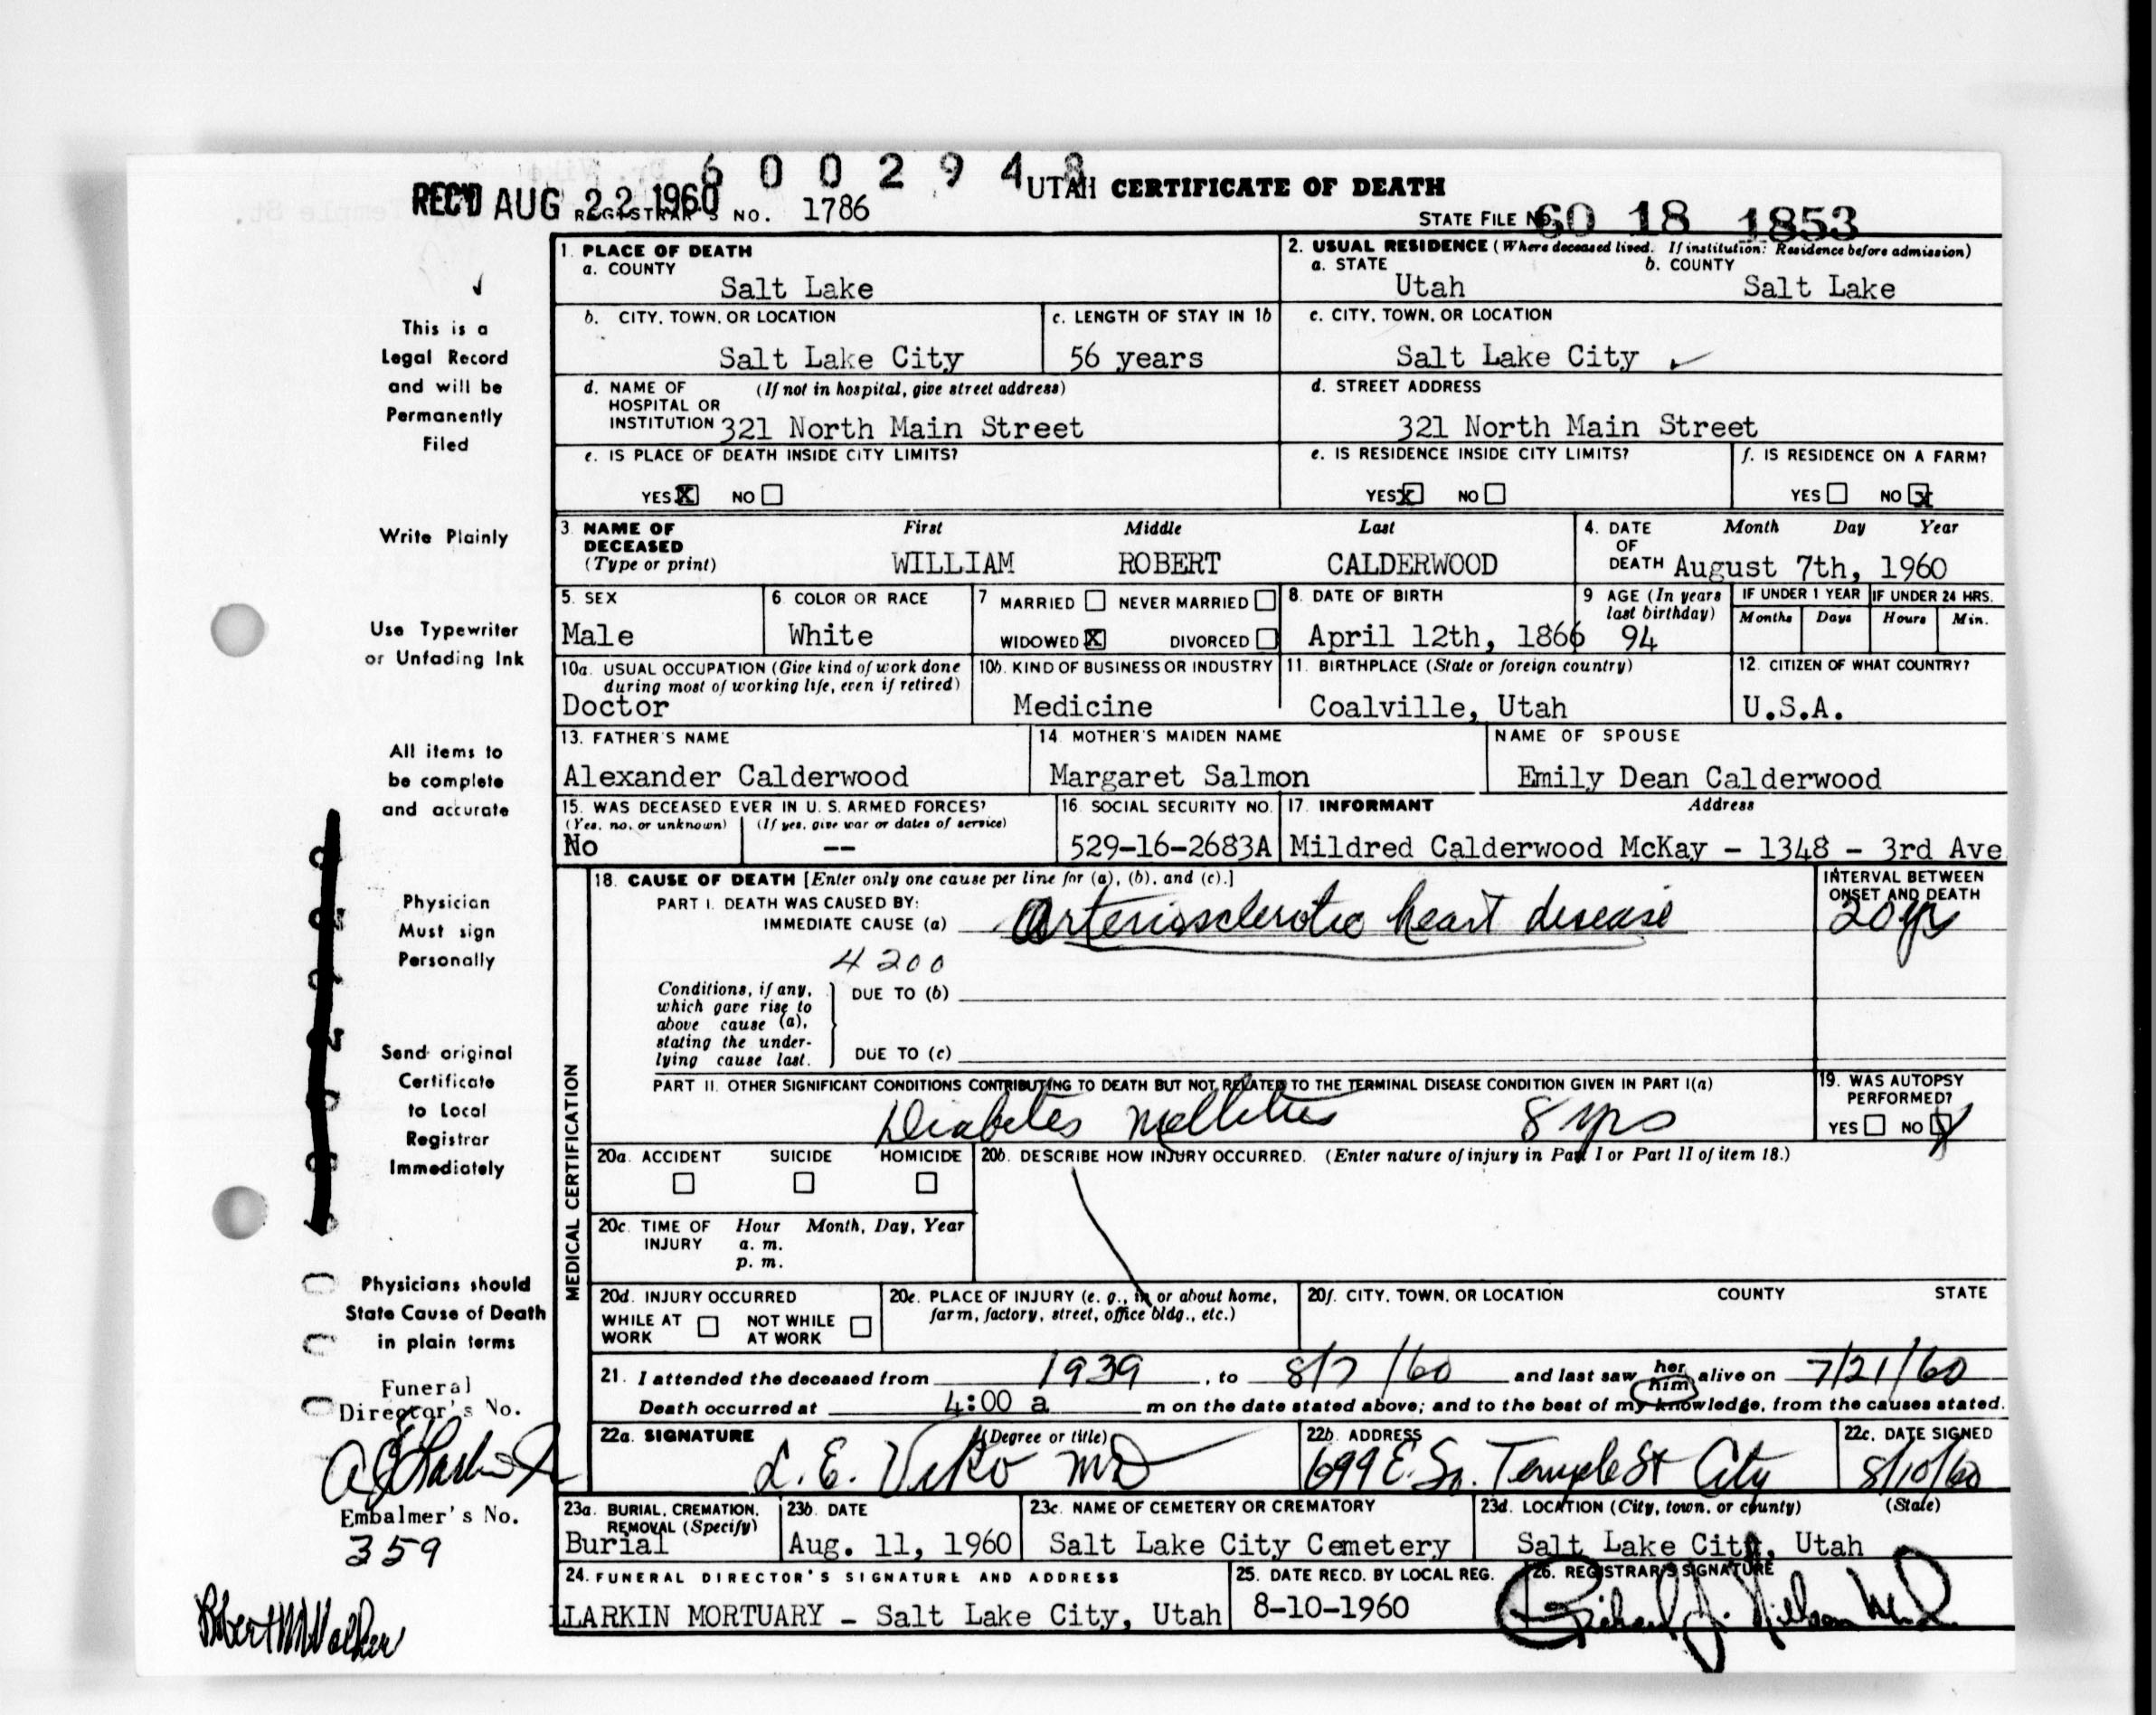 6 0 0 2 9 4 8
REC'D AUG 22 1960 REGISTRAR'S NO. 1786
UTAH CERTIFICATE OF DEATH
STATE FILE NO. 60 18 1853
This is a
Legal Record
and will be
Permanently
Filed
Write Plainly
Use Typewriter
or Unfading Ink
All items to
be complete
and accurate
Physician
Must sign
Personally
Send original
Certificate
to Local
Registrar
Immediately
Physicians should
State Cause of Death
in plain terms
Funeral
Director's No.
Embalmer's No.
359
Robert M Walker
1. PLACE OF DEATH
a. COUNTY
Salt Lake
2. USUAL RESIDENCE (Where deceased lived. If institution: Residence before admission)
a. STATE b. COUNTY
Utah Salt Lake
b. CITY, TOWN, OR LOCATION
Salt Lake City
c. LENGTH OF STAY IN 1b
56 years
c. CITY, TOWN, OR LOCATION
Salt Lake City
d. NAME OF (If not in hospital, give street address)
HOSPITAL OR
INSTITUTION 321 North Main Street
d. STREET ADDRESS
321 North Main Street
e. IS PLACE OF DEATH INSIDE CITY LIMITS?
YES X NO
e. IS RESIDENCE INSIDE CITY LIMITS?
YES X NO
f. IS RESIDENCE ON A FARM?
YES NO X
3. NAME OF First Middle Last
DECEASED
(Type or print) WILLIAM ROBERT CALDERWOOD
4. DATE Month Day Year
OF
DEATH August 7th, 1960
5. SEX
Male
6. COLOR OR RACE
White
7 MARRIED NEVER MARRIED
WIDOWED X DIVORCED
8. DATE OF BIRTH
April 12th, 1866
9 AGE (In years
last birthday)
94
IF UNDER 1 YEAR IF UNDER 24 HRS.
Months Days Hours Min.
10a. USUAL OCCUPATION (Give kind of work done
during most of working life, even if retired)
Doctor
10b. KIND OF BUSINESS OR INDUSTRY
Medicine
11. BIRTHPLACE (State or foreign country)
Coalville, Utah
12. CITIZEN OF WHAT COUNTRY?
U.S.A.
13. FATHER'S NAME
Alexander Calderwood
14. MOTHER'S MAIDEN NAME
Margaret Salmon
NAME OF SPOUSE
Emily Dean Calderwood
15. WAS DECEASED EVER IN U. S. ARMED FORCES?
(Yes, no, or unknown) (If yes, give war or dates of service)
No --
16. SOCIAL SECURITY NO.
529-16-2683A
17. INFORMANT Address
Mildred Calderwood McKay - 1348 - 3rd Ave
MEDICAL CERTIFICATION
18. CAUSE OF DEATH [Enter only one cause per line for (a), (b), and (c).]
PART I. DEATH WAS CAUSED BY:
IMMEDIATE CAUSE (a) Arteriosclerotic heart disease
INTERVAL BETWEEN
ONSET AND DEATH
20 yrs
4200
Conditions, if any,
which gave rise to
above cause (a),
stating the under-
lying cause last.
DUE TO (b)
DUE TO (c)
PART II. OTHER SIGNIFICANT CONDITIONS CONTRIBUTING TO DEATH BUT NOT RELATED TO THE TERMINAL DISEASE CONDITION GIVEN IN PART I(a)
Diabetes Mellitus 8 yrs
19. WAS AUTOPSY
PERFORMED?
YES NO X
20a. ACCIDENT SUICIDE HOMICIDE
20b. DESCRIBE HOW INJURY OCCURRED. (Enter nature of injury in Part I or Part II of item 18.)
20c. TIME OF Hour Month, Day, Year
INJURY a. m.
p. m.
20d. INJURY OCCURRED
WHILE AT WORK NOT WHILE AT WORK
20e. PLACE OF INJURY (e. g., in or about home,
farm, factory, street, office bldg., etc.)
20f. CITY, TOWN, OR LOCATION COUNTY STATE
21. I attended the deceased from 1939, to 8/7/60 and last saw her him alive on 7/21/60
Death occurred at 4:00 a m on the date stated above; and to the best of my knowledge, from the causes stated.
22a. SIGNATURE (Degree or title)
L. E. Viko MD
22b. ADDRESS
699 E. So. Temple St City
22c. DATE SIGNED
8/10/60
23a. BURIAL, CREMATION,
REMOVAL (Specify)
Burial
23b. DATE
Aug. 11, 1960
23c. NAME OF CEMETERY OR CREMATORY
Salt Lake City Cemetery
23d. LOCATION (City, town, or county) (State)
Salt Lake City, Utah
24. FUNERAL DIRECTOR'S SIGNATURE AND ADDRESS
LARKIN MORTUARY - Salt Lake City, Utah
25. DATE RECD. BY LOCAL REG.
8-10-1960
26. REGISTRAR'S SIGNATURE
Richard J. Nielson M.D.